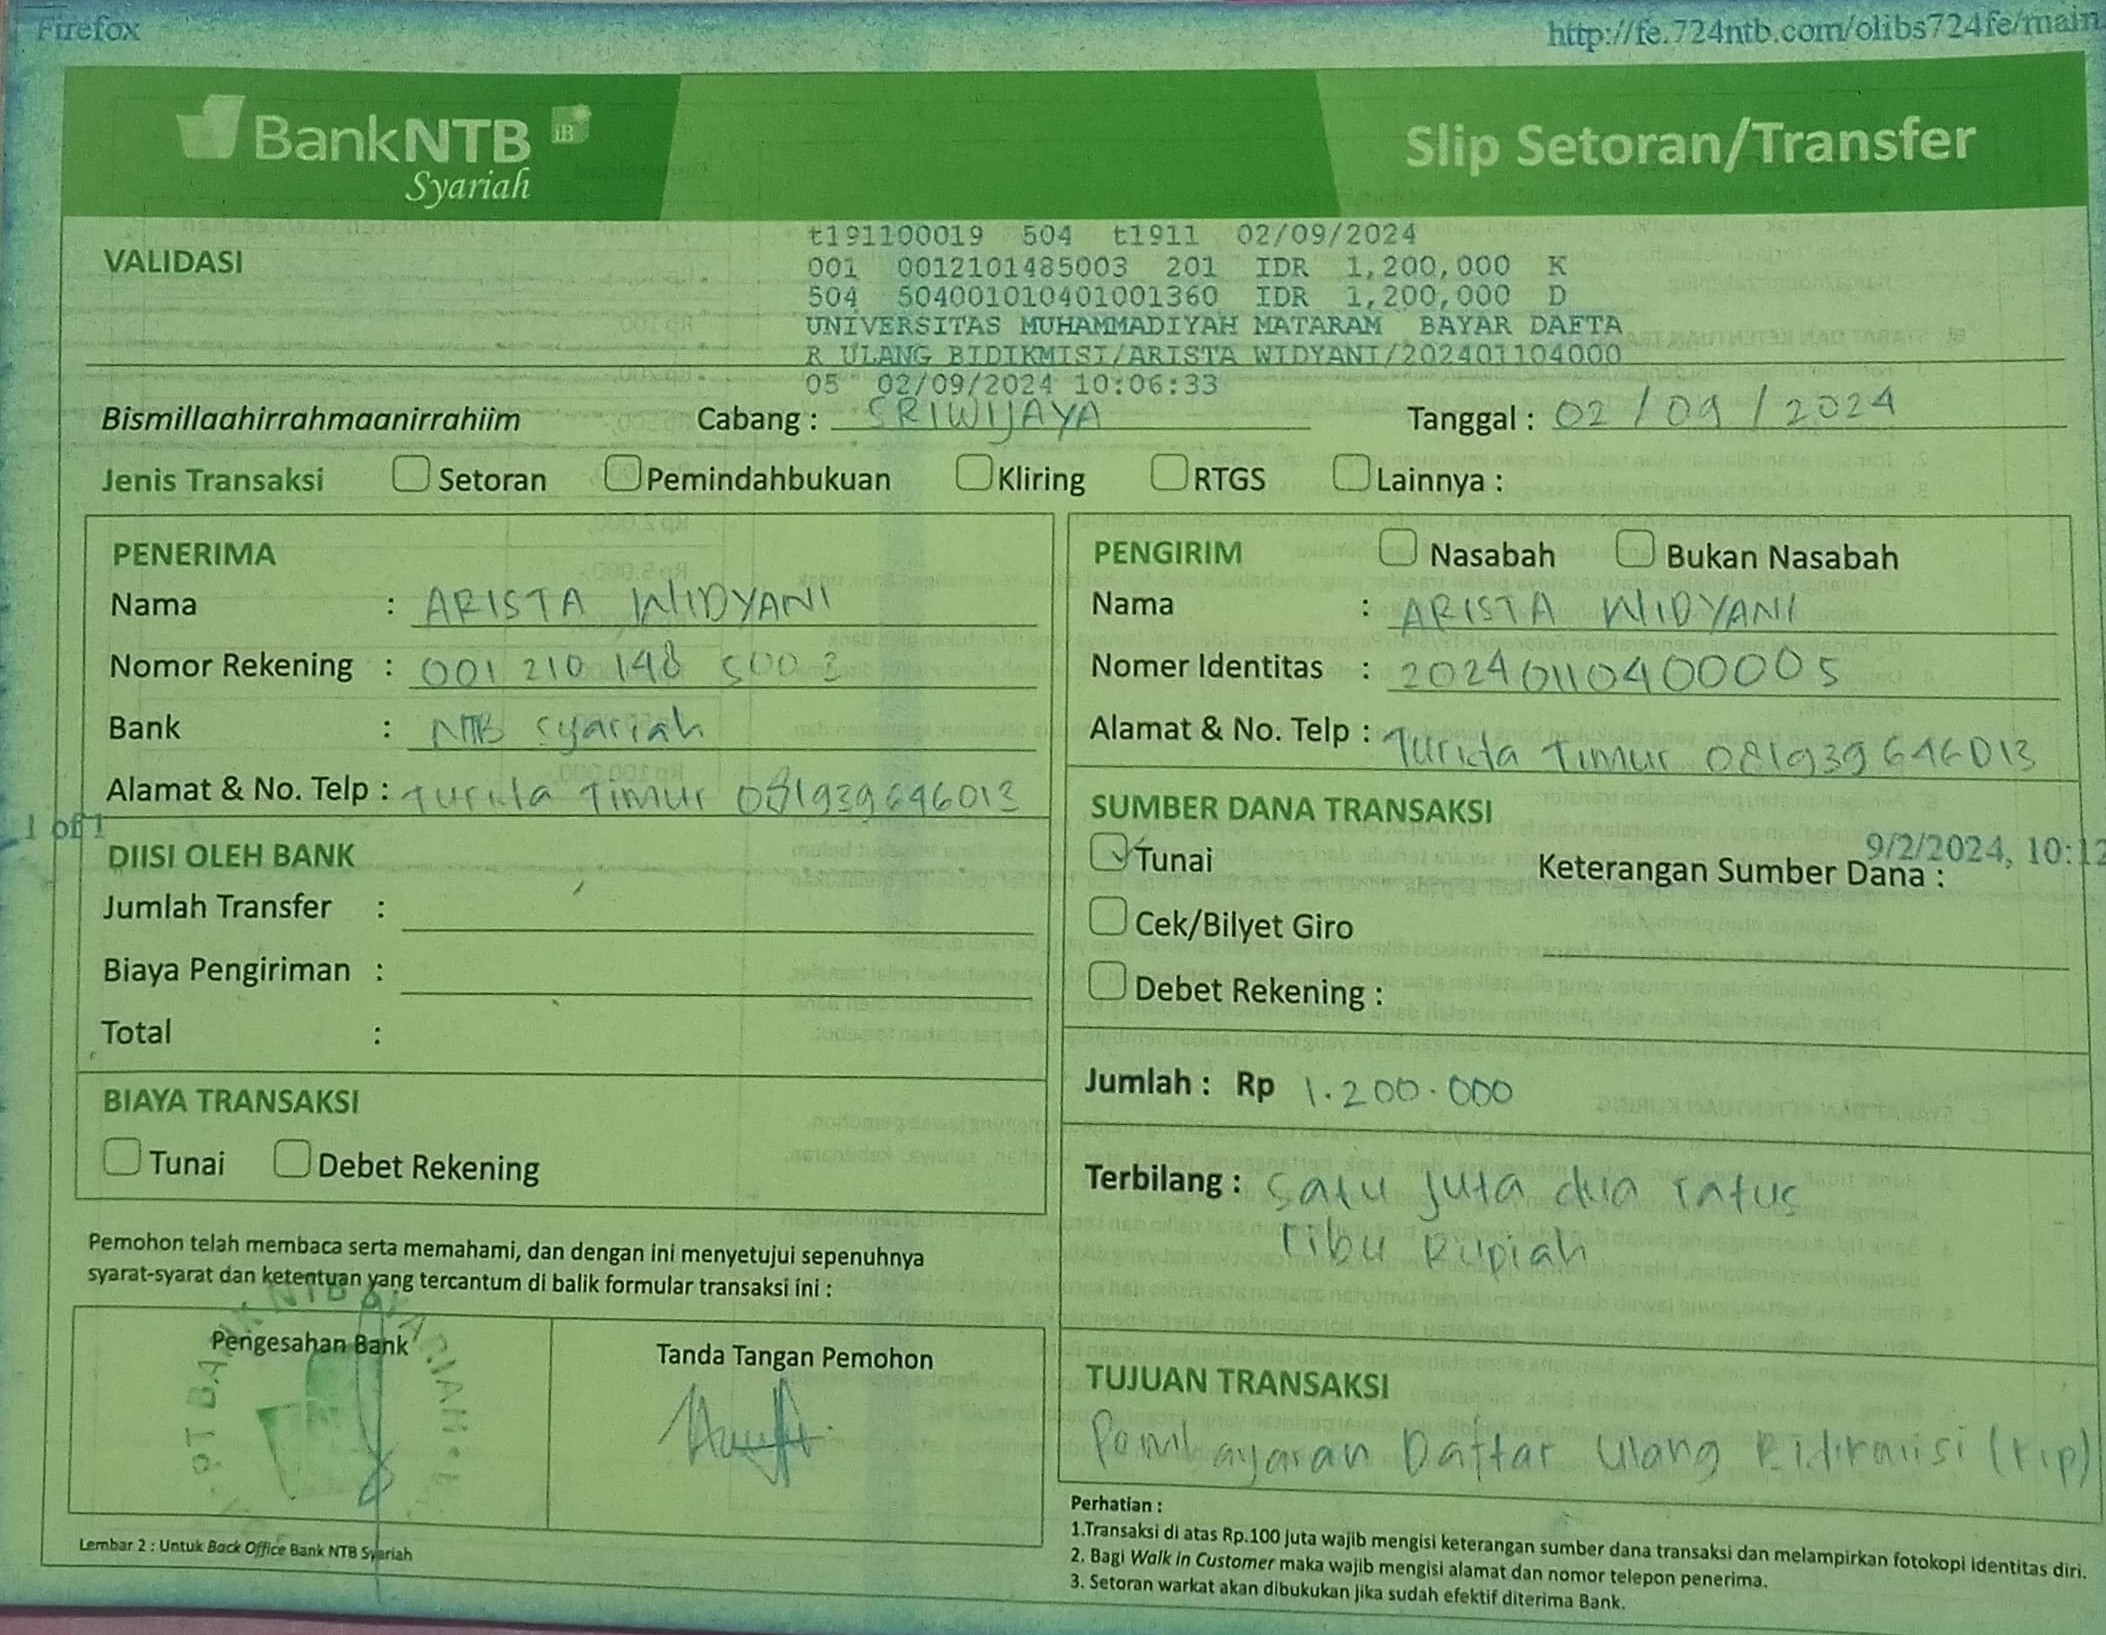 Firefox
http://fe.724ntb.com/olibs724fe/main
BankNTB iB
Syariah
Slip Setoran/Transfer
VALIDASI
t191100019 504 t1911 02/09/2024
001 0012101485003 201 IDR 1,200,000 K
504 504001010401001360 IDR 1,200,000 D
UNIVERSITAS MUHAMMADIYAH MATARAM BAYAR DAFTA
R ULANG BIDIKMISI/ARISTA WIDYANI/202401104000
05 02/09/2024 10:06:33
Bismillaahirrahmaanirrahiim Cabang : SRIWIJAYA Tanggal : 02/09/2024
Jenis Transaksi Setoran Pemindahbukuan Kliring RTGS Lainnya :
PENERIMA
Nama : ARISTA WIDYANI
Nomor Rekening : 001 210 148 5003
Bank : NTB Syariah
Alamat & No. Telp : Turida Timur 081939646013
1 of 1
DIISI OLEH BANK
Jumlah Transfer :
Biaya Pengiriman :
Total :
BIAYA TRANSAKSI
Tunai Debet Rekening
PENGIRIM Nasabah Bukan Nasabah
Nama : ARISTA WIDYANI
Nomer Identitas : 20240110400005
Alamat & No. Telp : Turida Timur 081939646013
SUMBER DANA TRANSAKSI
9/2/2024, 10:12
Tunai Keterangan Sumber Dana :
Cek/Bilyet Giro
Debet Rekening :
Jumlah : Rp 1.200.000
Terbilang : Satu juta dua ratus
ribu Rupiah
Pemohon telah membaca serta memahami, dan dengan ini menyetujui sepenuhnya
syarat-syarat dan ketentuan yang tercantum di balik formular transaksi ini :
Pengesahan Bank
PT BANK NTB SYARIAH
Tanda Tangan Pemohon
TUJUAN TRANSAKSI
Pembayaran Daftar Ulang Bidikmisi (kip)
Lembar 2 : Untuk Back Office Bank NTB Syariah
Perhatian :
1.Transaksi di atas Rp.100 juta wajib mengisi keterangan sumber dana transaksi dan melampirkan fotokopi identitas diri.
2. Bagi Walk in Customer maka wajib mengisi alamat dan nomor telepon penerima.
3. Setoran warkat akan dibukukan jika sudah efektif diterima Bank.